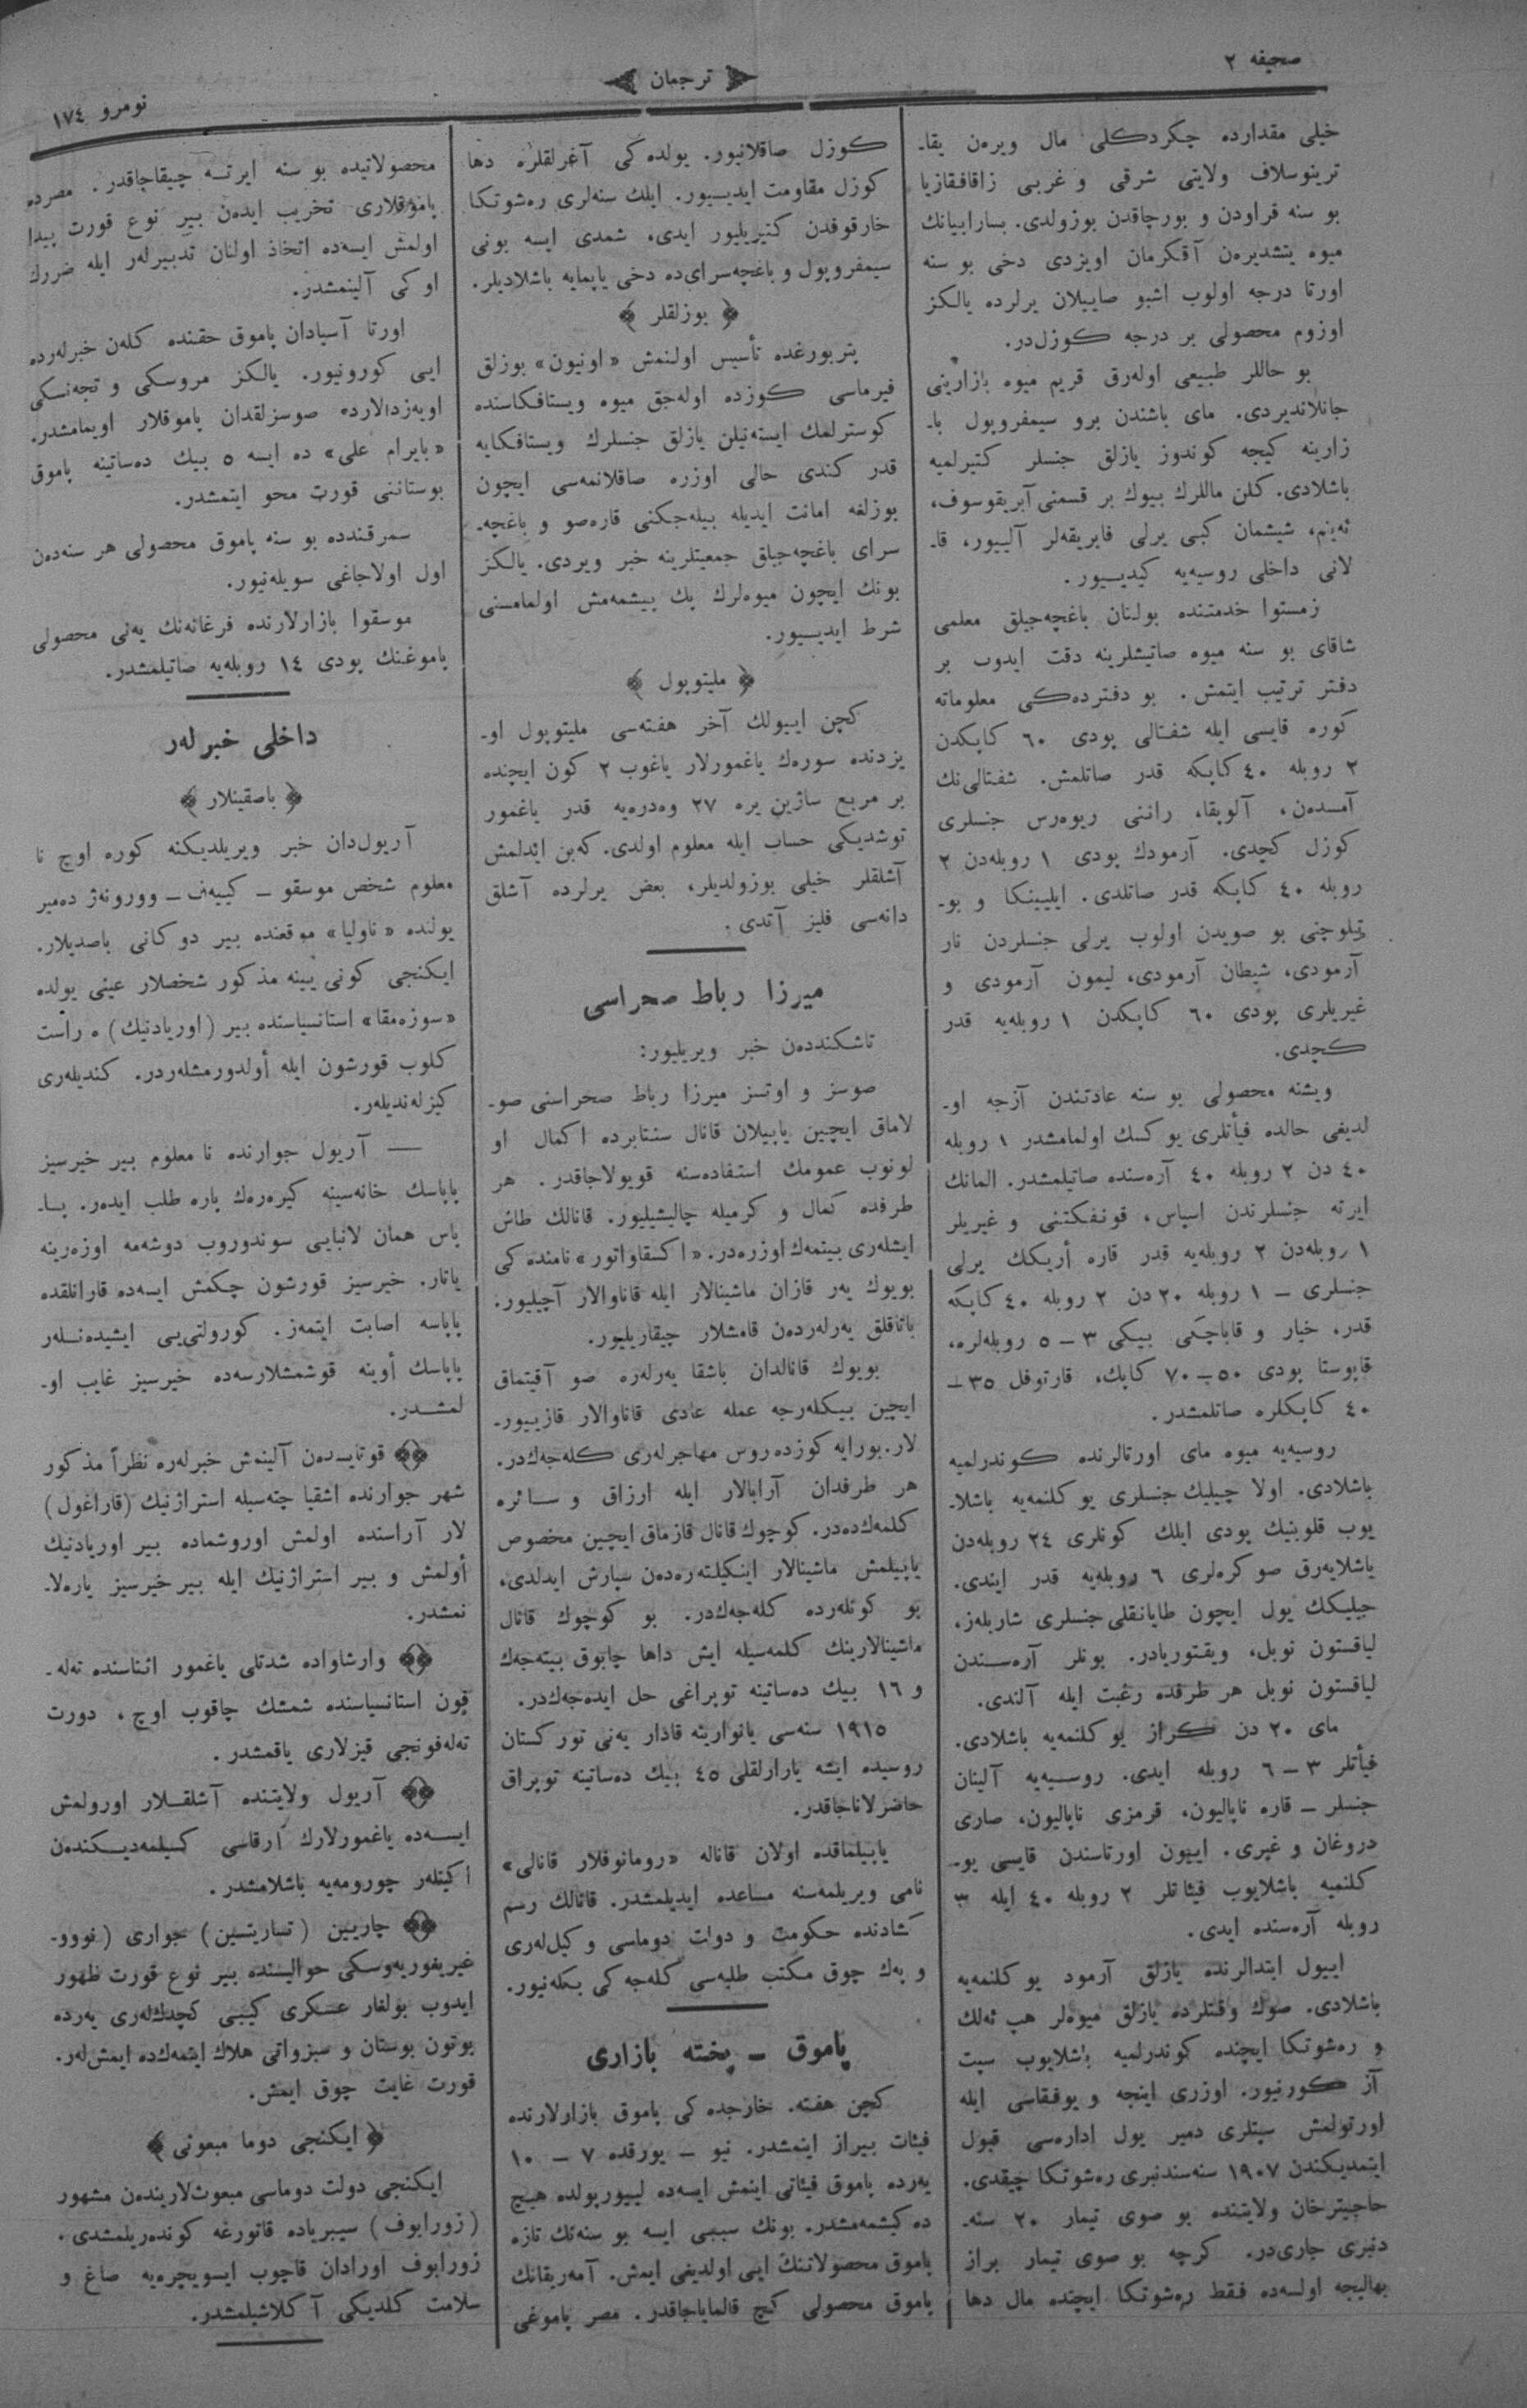 صحیفه ٢
ترجمان
نومرو ١٧٤
خیلی مقدارده چکردکلی مال ویره‌ن یقا-
ترینوسلاف ولایتی شرقی و غربی زاقافقازیا
بو سنه قراودن و بورچاقدن بوزولدی. بسارابیانك
میوه یتشدیره‌ن آقکرمان اویزدی دخی بو سنه
اورتا درجه اولوب اشبو صاییلان یرلرده یالکز
اوزوم محصولی بر درجه کوزل‌در.
بو حاللر طبیعی اوله‌رق قریم میوه بازارینی
جانلاندیردی. مای باشندن برو سیمفروپول با-
زارینه کیجه کوندوز یازلق جنسلر کتیرلمیه
باشلادی. کلن ماللرك بیوك بر قسمنی آبریقوسوف،
ئه‌ینم، شیشمان کبی یرلی فابریقه‌لر آلییور، قا-
لانی داخلی روسیه‌یه کیدییور.
زمستوا خدمتنده بولنان باغچه‌جیلق معلمی
شاقای بو سنه میوه صاتیشلرینه دقت ایدوب بر
دفتر ترتیب ایتمش. بو دفترده‌کی معلوماته
کوره قایسی ایله شفتالی پودی ٦٠ کاپکدن
٢ روبله ٤٠ کاپکه قدر صاتلمش. شفتالی‌نك
آمسده‌ن، آلوبقا، راننی ریوه‌رس جنسلری
کوزل کچدی. آرمودك پودی ١ روبله‌دن ٢
روبله ٤٠ کاپکه قدر صاتلدی. ایلیینکا و بو-
تیلوچنی بو صویدن اولوب یرلی جنسلردن نار
آرمودی، شیطان آرمودی، لیمون آرمودی و
غیریلری پودی ٦٠ کاپکدن ١ روبله‌یه قدر
کچدی.
ویشنه محصولی بو سنه عادتندن آزجه او-
لدیغی حالده فیأتلری یوکسك اولمامشدر ١ روبله
٤٠ دن ٢ روبله ٤٠ آره‌سنده صاتیلمشدر. المانك
ایرته جنسلرندن اسپاس، قونفکتنی و غیریلر
١ روبله‌دن ٢ روبله‌یه قدر قاره أریکك یرلی
جنسلری – ١ روبله ٢٠ دن ٢ روبله ٤٠ کاپکه
قدر. خیار و قاباچکی بیکی ٣ – ٥ روبله‌لره،
قاپوستا پودی ٥٠–٧٠ کاپك، قارتوفل ٣٥–
٤٠ کاپکلره صاتلمشدر.
روسیه‌یه میوه مای اورتالرنده کوندرلمیه
باشلادی. اولا چیلیك جنسلری یوکلنمه‌یه باشلا-
یوب قلوبنیك پودی ایلك کونلری ٢٤ روبله‌دن
باشلایه‌رق صوکره‌لری ٦ روبله‌یه قدر ایندی.
جیلیکك یول ایچون طایانقلی جنسلری شاربله‌ز،
لیاقستون نوبل، ویقتوریادر. بونلر آره‌سندن
لیاقستون نوبل هر طرفده رغبت ایله آلندی.
مای ٢٠ دن کراز یوکلنمه‌یه باشلادی.
فیأتلر ٣ – ٦ روبله ایدی. روسیه‌یه آلینان
جنسلر – قاره ناپالیون، قرمزی ناپالیون، صاری
دروغان و غیری. اییون اورتاسندن قایسی یو-
کلنمیه باشلایوب فیئاتلر ٢ روبله ٤٠ ایله ٣
روبله آره‌سنده ایدی.
اییول ابتدالرنده یازلق آرمود یوکلنمه‌یه
باشلادی. صوك وقتلرده یازلق میوه‌لر هپ ئه‌لك
و ره‌شوتکا ایچنده کوندرلمیه باشلایوب سپت
آز کورنیور. اوزری اینجه و یوفقاسی ایله
اورتولمش سپتلری دمیر یول اداره‌سی قبول
ایتمدیکندن ١٩٠٧ سنه‌سندنبری ره‌شوتکا چیقدی.
حاجیترخان ولایتنده بو صوی تیمار ٢٠ سنه-
دنبری جاری‌در. کرچه بو صوی تیمار براز
بهالیجه اولسه‌ده فقط ره‌شوتکا ایچنده مال دها
کوزل صاقلانیور. یولده‌کی آغرلقلره دها
کوزل مقاومت ایدییور. ایلك سنه‌لری ره‌شوتکا
خارقوفدن کتیریلیور ایدی، شمدی ایسه بونی
سیمفروپول و باغچه‌سرای‌ده دخی یاپمایه باشلادیلر.
﴿ بوزلقلر ﴾
پتربورغده تأسیس اولنمش «اونیون» بوزلق
فیرماسی کوزده اوله‌جق میوه ویستافکاسنده
کوسترلمك ایسته‌نیلن یازلق جنسلرك ویستافکایه
قدر کندی حالی اوزره صاقلانمه‌سی ایچون
بوزلغه امانت ایدیله بیله‌جکنی قاره‌صو و باغچه-
سرای باغچه‌جیلق جمعیتلرینه خبر ویردی. یالکز
بونك ایچون میوه‌لرك پك پیشمه‌مش اولمامسنی
شرط ایدییور.
﴿ ملیتوپول ﴾
کچن اییولك آخر هفته‌سی ملیتوپول او-
یزدنده سوره‌ك یاغمورلار یاغوب ٢ کون ایچنده
بر مربع ساژین یره ٢٧ وه‌دره‌یه قدر یاغمور
توشدیکی حساب ایله معلوم اولدی. که‌بن ائدلمش
آشلقلر خیلی بوزولدیلر، بعض یرلرده آشلق
دانه‌سی فلیز آتدی.
میرزا رباط صحراسی
تاشکندده‌ن خبر ویریلیور:
صوسز و اوتسز میرزا رباط صحراسنی صو-
لاماق ایچین یاپیلان قانال سنتابرده اکمال او
لونوب عمومك استفاده‌سنه قویولاجاقدر. هر
طرفده کمال و کرمیله چالیشیلیور. قانالك طاش
ایشله‌ری بیتمه‌ك اوزره‌در. «اکسقاواتور» نامنده کی
بویوك یه‌ر قازان ماشینالار ایله قاناوالار آچیلیور.
باتاقلق یه‌رله‌رده‌ن قامشلار چیقاریلیور.
بویوك قانالدان باشقا یه‌رله‌ره صو آقیتماق
ایچین بیکله‌رجه عمله عادی قاناوالار قازییور-
لار. بورایه کوزده روس مهاجرله‌ری کله‌جه‌ك‌در.
هر طرفدان آرابالار ایله ارزاق و سائره
کلمه‌ك‌ده‌در. کوچوك قانال قازماق ایچین مخصوص
یاپیلمش ماشینالار اینکیلته‌ره‌ده‌ن سپارش ایدلدی،
بو کونله‌رده کله‌جه‌ك‌در. بو کوچوك قانال
ماشینالارینك کلمه‌سیله ایش داها چابوق بیته‌جه‌ك
و ١٦ بیك ده‌ساتینه توپراغی حل ایده‌جه‌ك‌در.
١٩١٥ سنه‌سی یانوارینه قادار یه‌نی تورکستان
روسیده ایشه یارارلقلی ٤٥ بیك ده‌ساتینه توپراق
حاضرلاناجاقدر.
یاپیلماقده اولان قاناله «رومانوفلار قانالی»
نامی ویریلمه‌سنه مساعده ایدیلمشدر. قانالك رسم
کشادنده حکومت و دولت دوماسی وکیل‌له‌ری
و په‌ك چوق مکتب طلبه‌سی کله‌جه‌کی بکله‌نیور.
پاموق – پخته بازاری
کچن هفته. خارجده کی پاموق بازارلارنده
فیئات بیراز اینمشدر. نیو – یورقده ٧ – ١٠
یه‌رده پاموق فیئاتی اینمش ایسه‌ده لیورپولده هیچ
ده‌کیشمه‌مشدر. بونك سببی ایسه بو سنه‌نك تازه
پاموق محصولاتننك ایی اولدیغی ایمش. آمه‌ریقانك
پاموق محصولی کچ قالمایاجاقدر. مصر پاموغی
محصولاتیده بو سنه ایرته چیقاجاقدر. مصرده
پاموقلاری تخریب ایده‌ن بیر نوع قورت پیدا
اولمش ایسه‌ده اتخاذ اولنان تدبیرله‌ر ایله ضررك
اوکی آلینمشدر.
اورتا آسیادان پاموق حقنده کله‌ن خبرله‌رده
ایی کورونیور. یالکز مروسکی و تجه‌نسکی
اویه‌زدالارده صوسزلقدان پاموقلار اویمامشدر.
«بایرام علی» ده ایسه ٥ بیك ده‌ساتینه پاموق
بوستاننی قورت محو ایتمشدر.
سمرقندده بو سنه پاموق محصولی هر سنه‌ده‌ن
اول اولاجاغی سویله‌نیور.
موسقوا بازارلارنده فرغانه‌نك یه‌نی محصولی
پاموغنك پودی ١٤ روبله‌یه صاتیلمشدر.
داخلی خبرله‌ر
﴿ باصقینلار ﴾
آریول‌دان خبر ویریلدیکنه کوره اوچ نا
معلوم شخص موسقو – کییه‌ف – وورونه‌ژ ده‌میر
یولنده «ناولیا» موقعنده بیر دوکانی باصدیلار.
ایکنجی کونی یینه مذکور شخصلار عینی یولده
«سوزه‌مقا» استانسیاسنده بیر (اوریادنیك) ه راست
کلوب قورشون ایله أولدورمشله‌ردر. کندیله‌ری
کیزله‌ندیله‌ر.
— آریول جوارنده نا معلوم بیر خیرسیز
پاپاسك خانه‌سینه کیره‌ره‌ك پاره طلب ایده‌ر. پا-
پاس همان لانپایی سوندوروب دوشه‌مه اوزه‌رینه
یاتار. خیرسیز قورشون چکمش ایسه‌ده قارانلقده
پاپاسه اصابت ایتمه‌ز. کورولتی‌یی ایشیده‌نله‌ر
پاپاسك أوینه قوشمشلارسه‌ده خیرسیز غایب او-
لمشدر.
قوتایسده‌ن آلینمش خبرله‌ره نظراً مذکور
شهر جوارنده اشقیا چته‌سیله استراژنیك (قاراغول)
لار آراسنده اولمش اوروشماده بیر اوریادنیك
أولمش و بیر استراژنیك ایله بیر خیرسیز یاره‌لا-
نمشدر.
وارشاواده شدتلی یاغمور اثناسنده ته‌له-
فون استانسیاسنده شمشك چاقوب اوچ، دورت
ته‌له‌فونجی قیزلاری یاقمشدر.
آریول ولایتنده آشلقلار اورولمش
ایسه‌ده یاغمورلارك آرقاسی کسیلمه‌دیکندن
اکینله‌ر چورومه‌یه باشلامشدر.
چاریین (تساریتسین) جواری (نووو-
غیریغوریه‌وسکی حوالیسنده بیر نوع قورت ظهور
ایدوب بولغار عسکری کیبی کچدك‌له‌ری یه‌رده
بوتون بوستان و سبزواتی هلاك ایتمه‌ك‌ده ایمش‌له‌ر.
قورت غایت چوق ایمش.
﴿ ایکنجی دوما مبعوثی ﴾
ایکنجی دولت دوماسی مبعوث‌لارینده‌ن مشهور
(زورابوف) سیبریاده قاتورغه کونده‌ریلمشدی.
زورابوف اورادان قاچوب ایسویچره‌یه صاغ و
سلامت کلدیکی آکلاشیلمشدر.